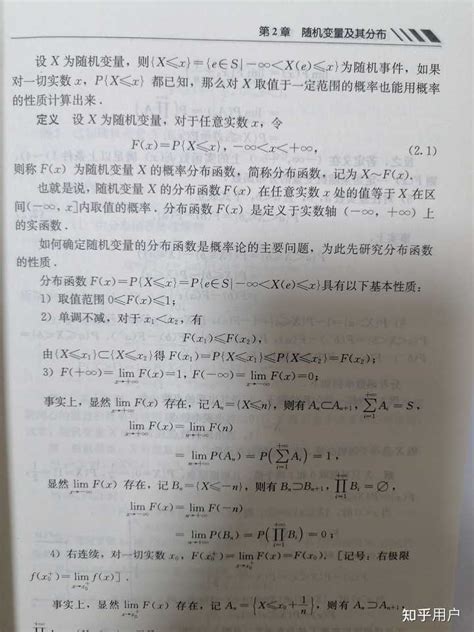 第 2 章 随机变量及其分布
设 X 为随机变量，则{X⩽x}={e∈S|−∞<X(e)⩽x}为随机事件，如果
对一切实数 x，P{X⩽x} 都已知，那么对 X 取值于一定范围的概率也能用概率
的性质计算出来．
定义 设 X 为随机变量，对于任意实数 x，令
F(x)=P{X⩽x}，−∞<x<+∞， (2.1)
则称 F(x) 为随机变量 X 的概率分布函数，简称分布函数，记为 X~F(x)．
也就是说，随机变量 X 的分布函数 F(x) 在任意实数 x 处的值等于 X 在区
间(−∞，x]内取值的概率．分布函数 F(x) 是定义于实数轴（−∞，+∞）上
的实函数．
如何确定随机变量的分布函数是概率论的主要问题，为此先研究分布函数
的性质．
分布函数 F(x)=P{X⩽x}=P{e∈S|−∞<X(e)⩽x}具有以下基本性质：
1) 取值范围 0⩽F(x)⩽1；
2) 单调不减，对于 x₁<x₂，有
F(x₁)⩽F(x₂)，
由{X⩽x₁}⊂{X⩽x₂}得 F(x₁)=P{X⩽x₁}⩽P{X⩽x₂}=F(x₂)；
3) F(+∞)=lim_{x→+∞}F(x)=1，F(−∞)=lim_{x→−∞}F(x)=0；
事实上，显然 lim_{x→+∞}F(x) 存在，记 Aₙ={X⩽n}，则有 Aₙ⊂Aₙ₊₁，∑_{i=1}^{+∞}Aᵢ=S，
lim_{x→+∞}F(x)=lim_{n→+∞}F(n)
=lim_{n→+∞}P(Aₙ)=P(∑_{i=1}^{+∞}Aᵢ)=1，
显然 lim_{x→−∞}F(x) 存在，记 Bₙ={X⩽−n}，则有 Bₙ⊃Bₙ₊₁，∏_{i=1}^{+∞}Bᵢ=∅，
lim_{x→−∞}F(x)=lim_{n→+∞}F(−n)
=lim_{n→+∞}P(Bₙ)=P(∏_{i=1}^{+∞}Bᵢ)=0；
4) 右连续，对一切实数 x₀，F(x₀⁺)=lim_{x→x₀⁺}F(x)=F(x₀)．[记号：右极限
f(x₀⁺)=lim_{x→x₀⁺}f(x)]．
事实上，显然 lim_{x→x₀⁺}F(x) 存在，记 Aₙ={X⩽x₀+1/n}，则有 Aₙ⊃Aₙ₊₁，
知乎用户